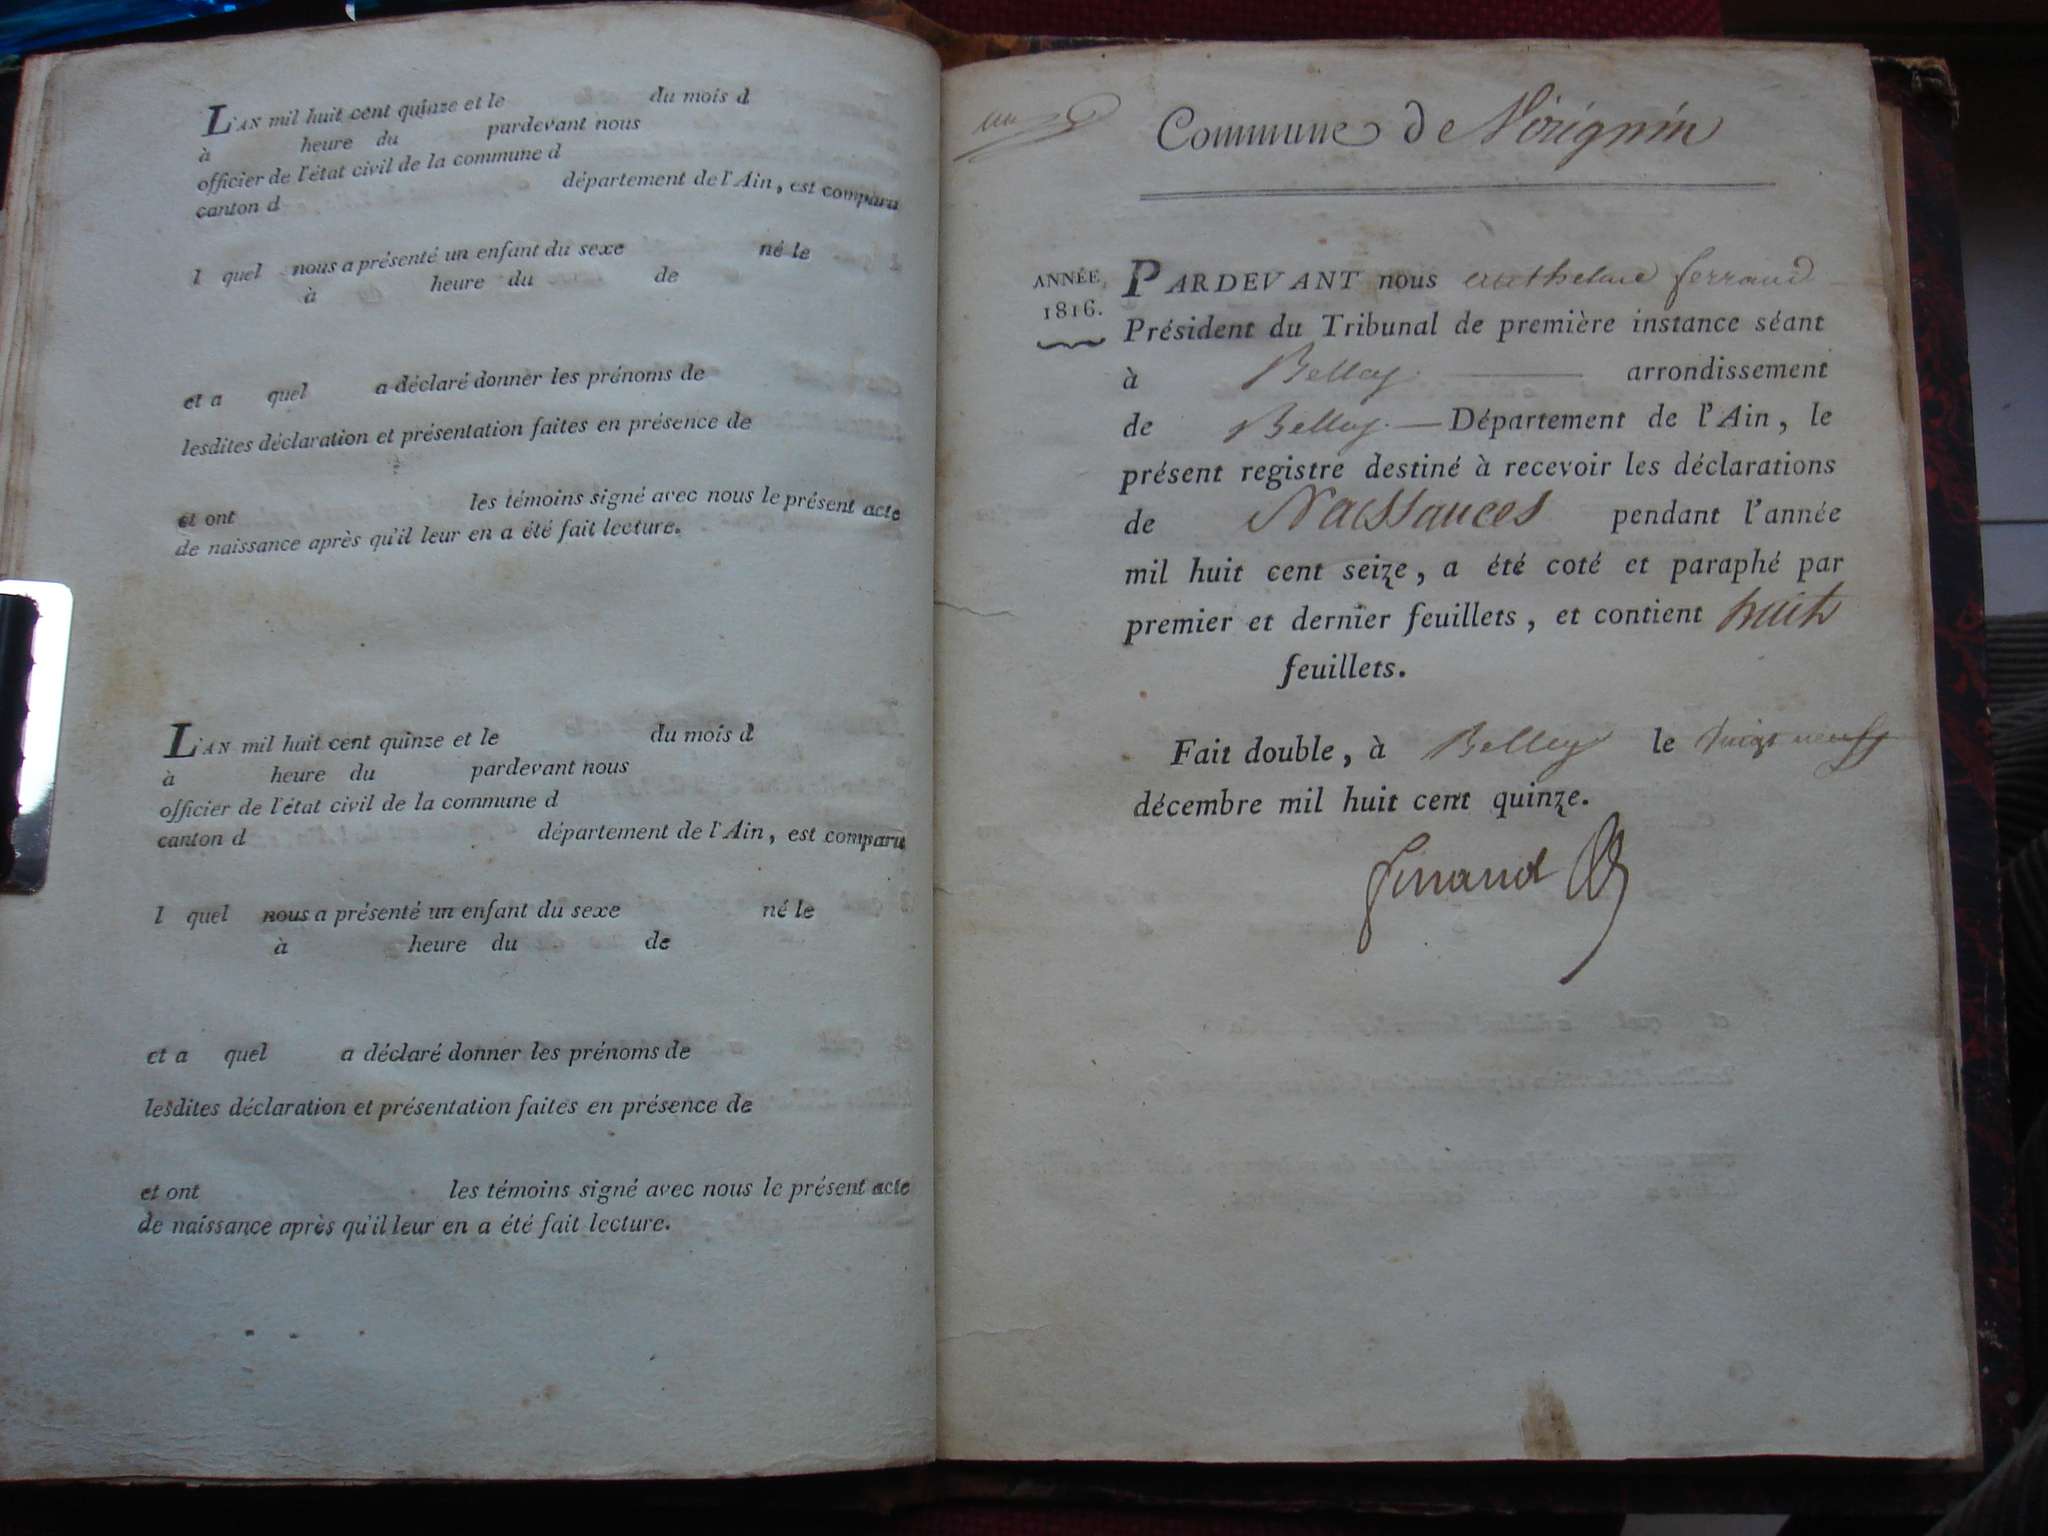 L'AN mil huit cent quinze et le du mois d
à heure du pardevant nous
officier de l'état civil de la commune d
canton d département de l'Ain, est comparu
l quel nous a présenté un enfant du sexe né le
à heure du de
et a quel a déclaré donner les prénoms de
lesdites déclaration et présentation faites en présence de
et ont les témoins signé avec nous le présent acte
de naissance après qu'il leur en a été fait lecture.
L'AN mil huit cent quinze et le du mois d
à heure du pardevant nous
officier de l'état civil de la commune d
canton d département de l'Ain, est comparu
l quel nous a présenté un enfant du sexe né le
à heure du de
et a quel a déclaré donner les prénoms de
lesdites déclaration et présentation faites en présence de
et ont les témoins signé avec nous le présent acte
de naissance après qu'il leur en a été fait lecture.
un
Commune de Virignin
ANNÉE
1816.
PARDEVANT nous anthelme ferrand
Président du Tribunal de première instance séant
à Belley arrondissement
de Belley Département de l'Ain, le
présent registre destiné à recevoir les déclarations
de Naissances pendant l'année
mil huit cent seize, a été coté et paraphé par
premier et dernier feuillets, et contient huit
feuillets.
Fait double, à Belley le vingt neuf
décembre mil huit cent quinze.